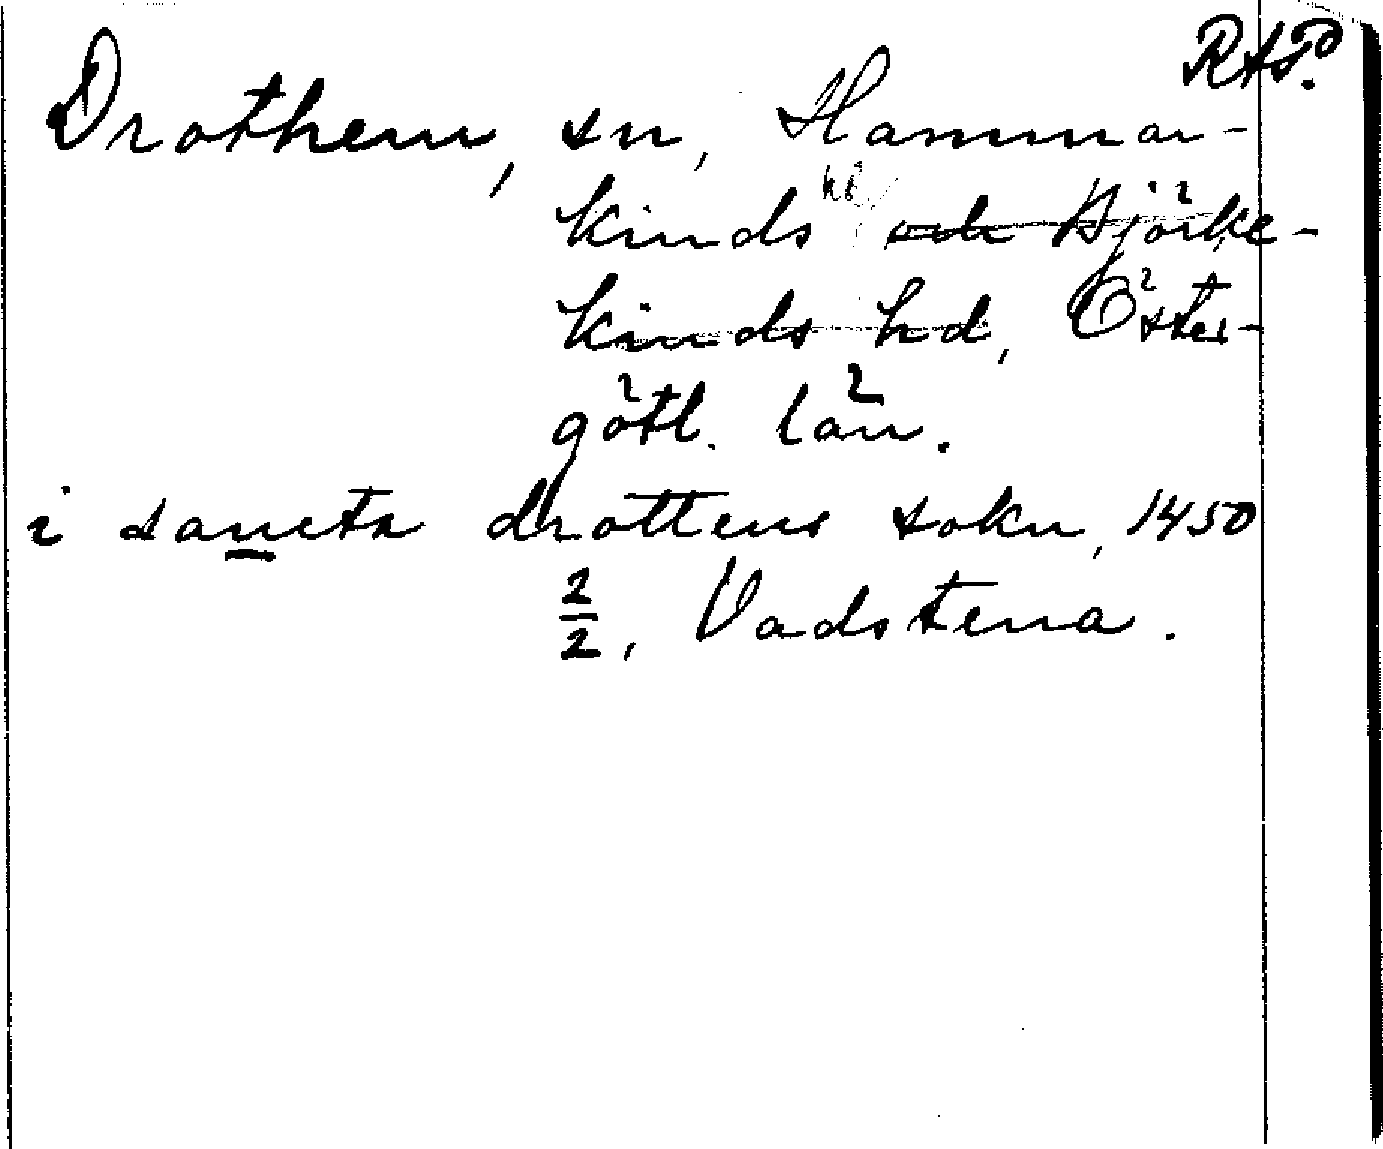 RAP.
Drothem, sn, Hammar-
kinds hd och Björke-
kinds hd, Öster-
götl. län.
i sancta drottens sokn, 1450
2/2, Vadstena.